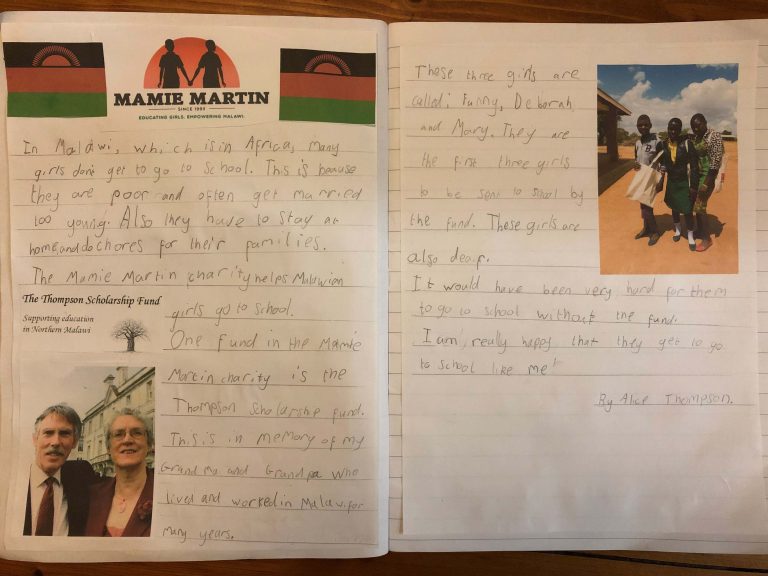 MAMIE MARTIN
SINCE 1993
EDUCATING GIRLS. EMPOWERING MALAWI.
In Malawi, which is in Africa, many
girls don't get to go to school. This is because
they are poor and often get married
too young. Also they have to stay at
home, and do chores for their families.
The Mamie Martin charity helps Malawian
The Thompson Scholarship Fund
Supporting education
in Northern Malawi
girls go to school.
One fund in the Mamie
Martin charity is the
Thompson Scholarship fund.
This is in memory of my
Grandma and Grandpa who
lived and worked in Malawi for
many years.
These three girls are
called; Funny, Deborah
and Mary. They are
the first three girls
to be sent to school by
the fund. These girls are
also deaf.
It would have been very hard for them
to go to school without the fund.
I am really happy that they get to go
to school like me!
By Alice Thompson.